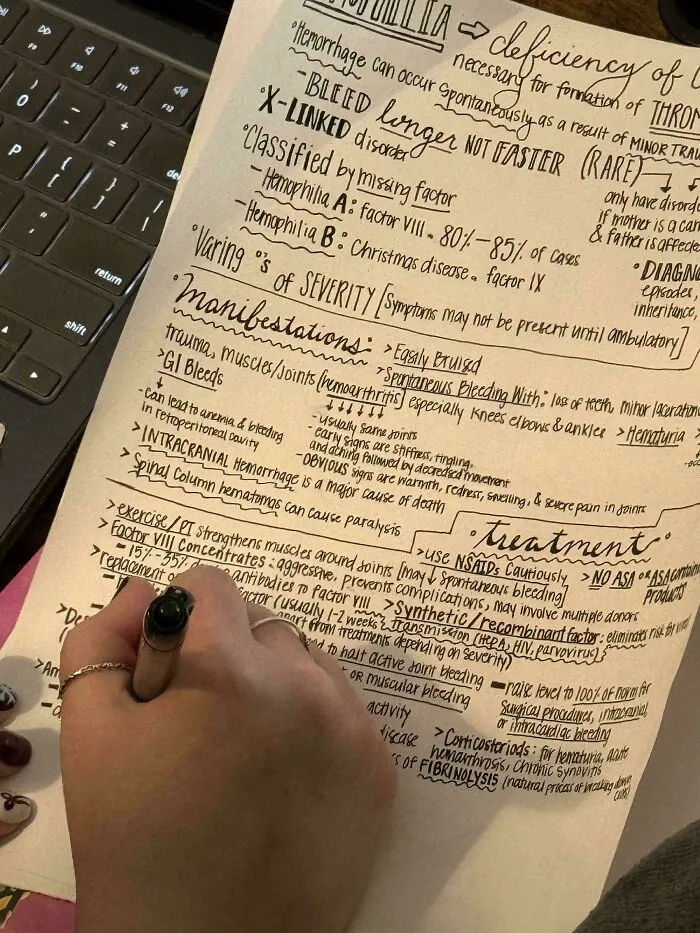 F9
F10
F11
F12
)
0
-
+
=
del
P
{
[
}
]
|
\
:
;
"
'
return
shift
PHILIA ⇒ deficiency of
necessary for formation of THROM
°Hemorrhage can occur spontaneously as a result of MINOR TRAU
-BLEED longer NOT FASTER (RARE)
°X-LINKED disorder
only have disord
if mother is a car
& father is affecte
°Classified by missing factor
-Hemophilia A: factor VIII - 80%-85% of cases
-Hemophilia B: Christmas disease - factor IX
°DIAGN
episodes,
inheritance,
°Varing °'s of SEVERITY [Symptoms may not be present until ambulatory]
°manifestations: >Easily Bruised
>Spontaneous Bleeding With: loss of teeth, minor laceration
trauma, muscles/joints [hemoarthritis] especially knees elbows & ankles >Hematuria >
>GI Bleeds
↓
-can lead to anemia & bleeding
in retroperitoneal cavity
↓↓↓↓↓↓
-usually same joints
-early signs are stiffness, tingling,
and aching followed by decreased movement
-OBVIOUS signs are warmth, redness, swelling, & severe pain in joints
>INTRACRANIAL Hemorrhage is a major cause of death
>Spinal column hematomas can cause paralysis
°treatment:
>exercise/PT strengthens muscles around joints [may ↓ spontaneous bleeding]
>use NSAIDs Cautiously >NO ASA or ASA containin
products
>Factor VIII Concentrates: aggressive, prevents complications, may involve multiple donors
-15%-35% antibodies to factor VIII
>Synthetic/recombinant factor: eliminates risk for viral
transmission (HEPA, HIV, parvovirus)
>replacement factor (usually 1-2 weeks
apart from treatments depending on severity)
to halt active joint bleeding
or muscular bleeding
-raise level to 100% of norm for
surgical procedures, intracranial,
or intracardiac bleeding
activity
disease
>Corticosteriods: for hematuria, acute
hemarthrosis, chronic synovitis
of FIBRINOLYSIS (natural process of breaking down
clots)